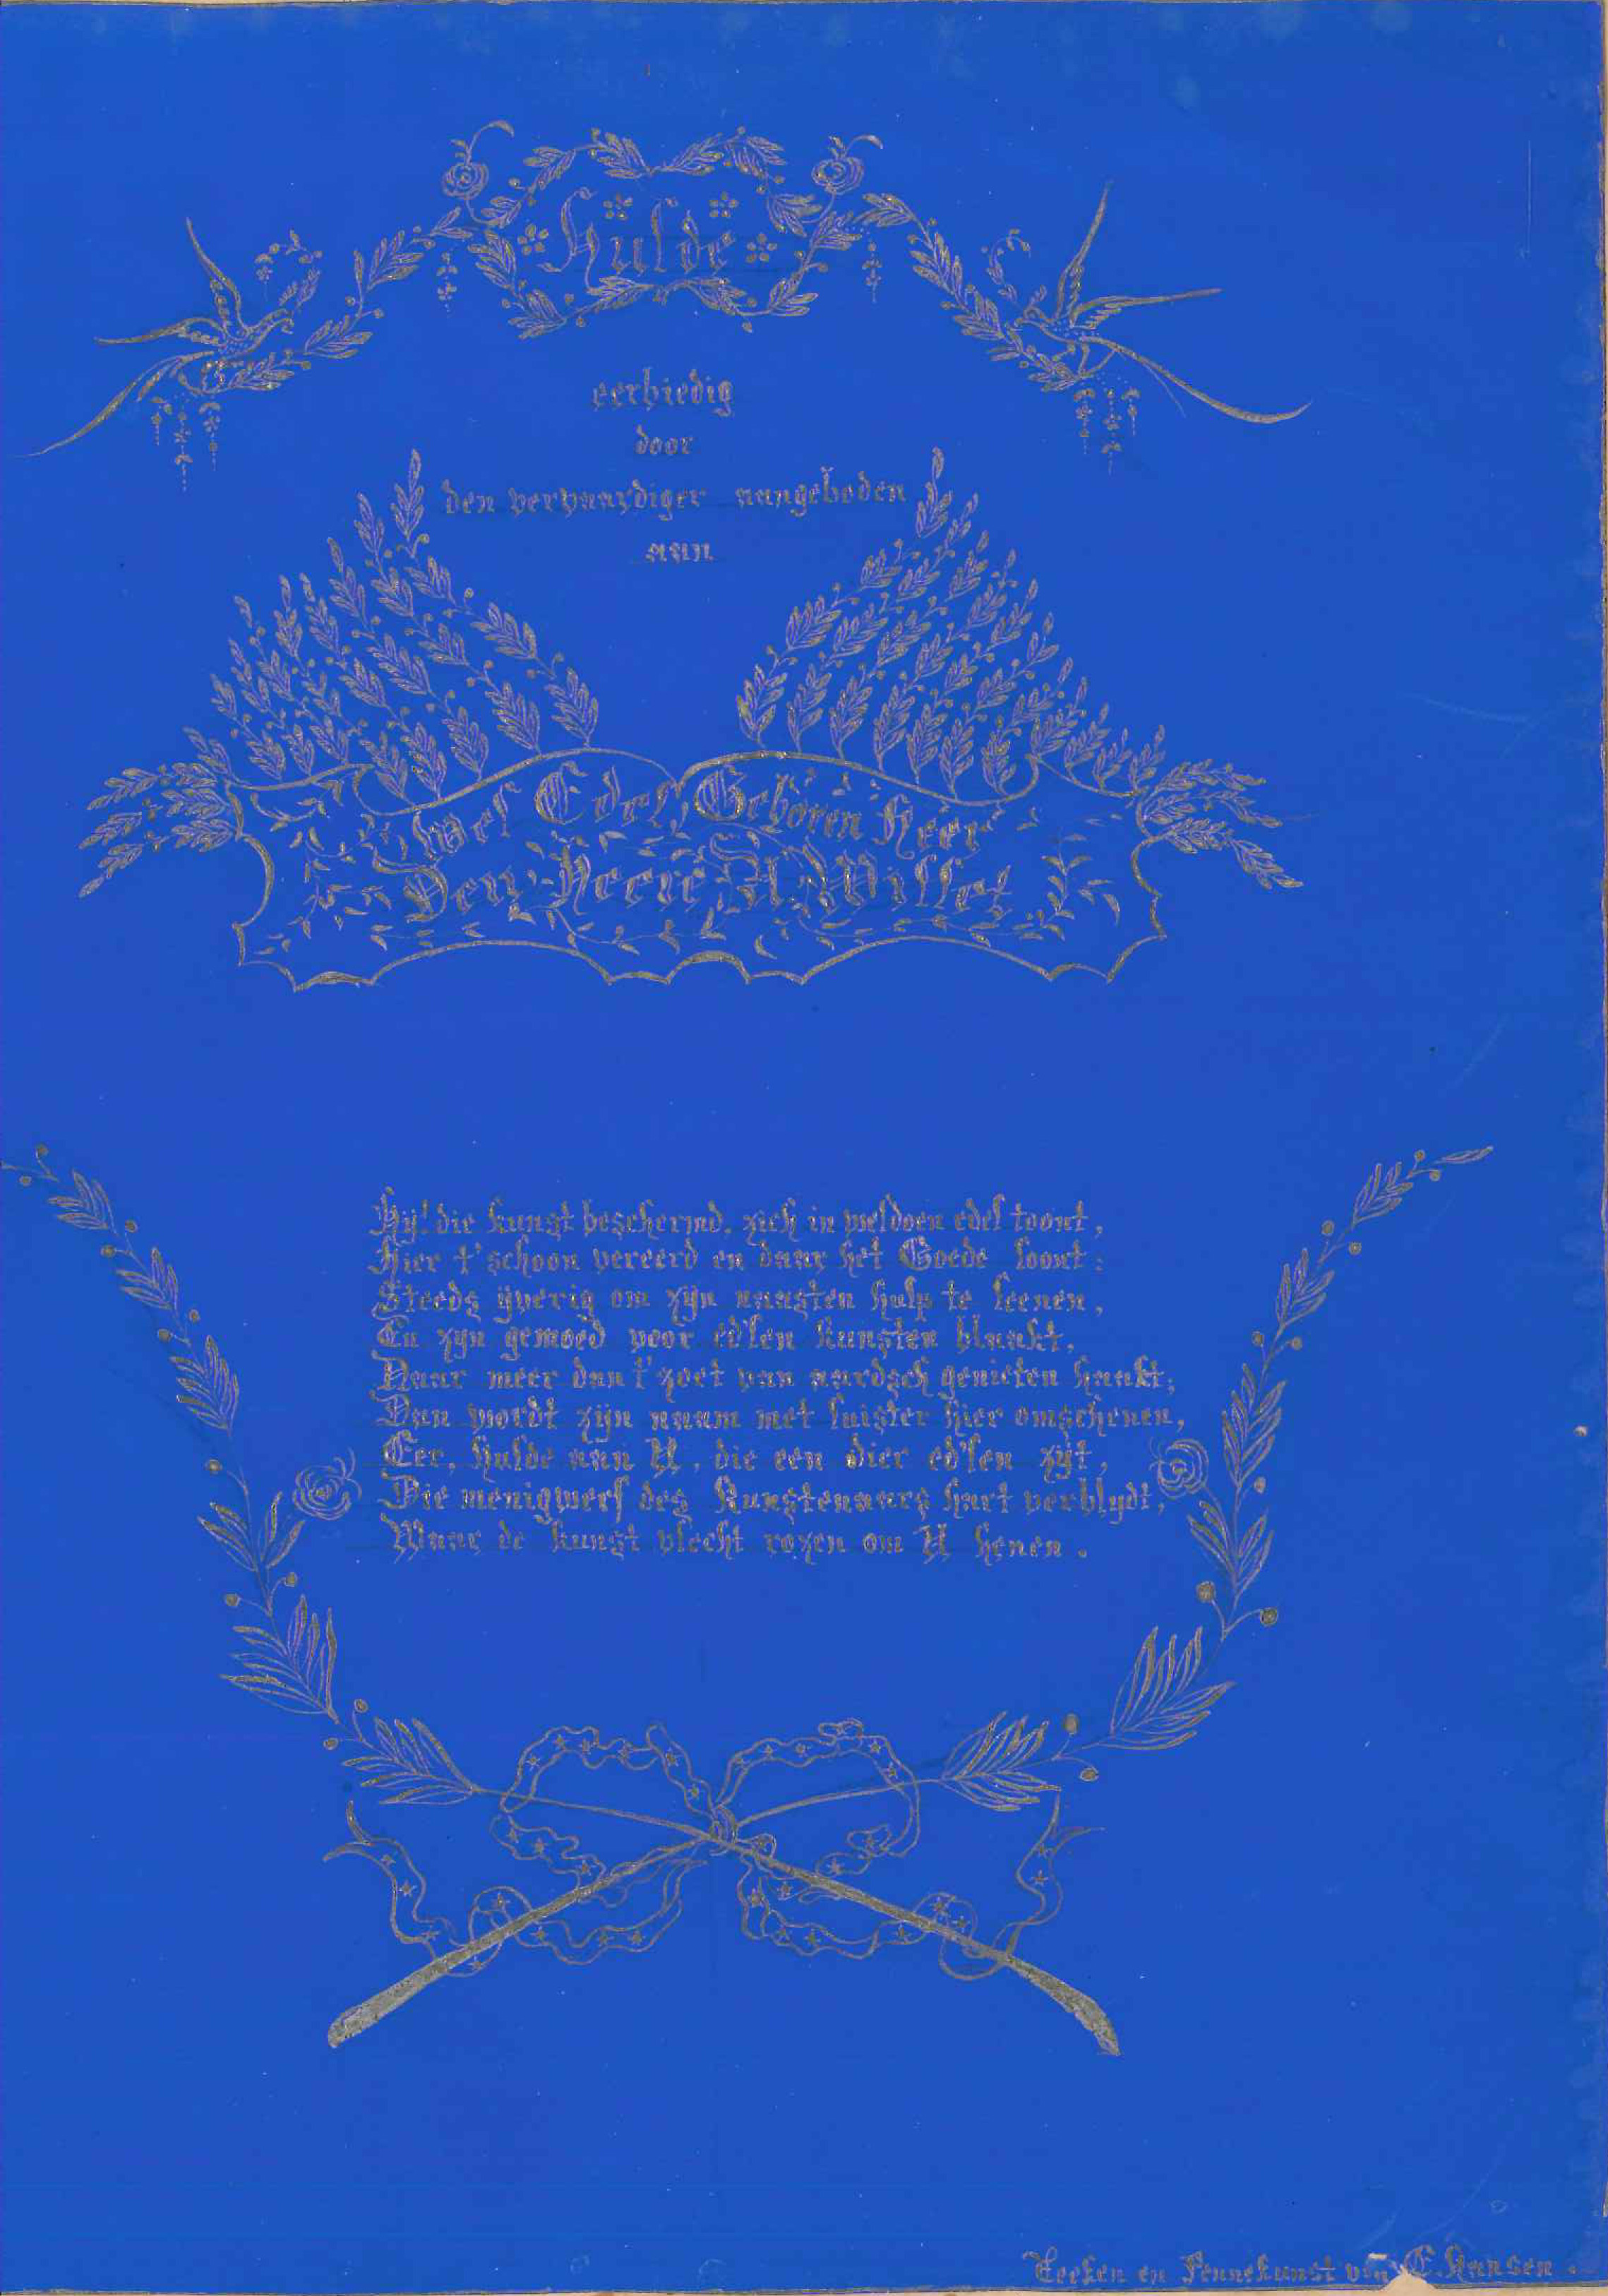 Hulde
eerbiedig
door
den vervaardiger aangeboden
aan
Wel Edel, Geboren Heer
Den Heere A. Willet
Hij! die kunst bescherjmd, zich in weldoen edel toont,
Hier t' schoon vereerd en daar het Goede loont;
Steeds ijverig om zijn naasten hulp te leenen,
En zijn gemoed voor ed'len Kunsten blaakt,
Naar meer dan t' zoet van aardsch genieten haakt;
Dan wordt zijn naam met luister hier omschenen,
Eer, hulde aan U, die een dier ed'len zijt,
Die menigwerf des Kunstenaars hart verblydt,
Waar de kunst vlecht rozen om U henen.
Teeken en Pennekunst van C. Hansen.